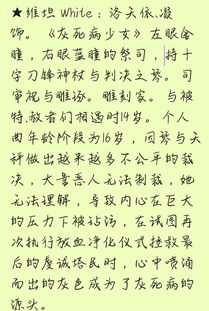 ★维坦White：洛天依.凝
饰。《灰死病少女》左眼金
瞳，右眼蓝瞳的祭司，持十
字刀锋神权与判决之琴。司
审视与雕琢。雕刻家。与被
特赦者们相遇时14岁。个人
曲年龄阶段为16岁，因琴与天
秤做出越来越多不公平的裁
决，大量恶人无法制裁，她
无法理解，导致内心在巨大
的压力下被玷污，在试图再
次执行放血净化仪式拯救最
后的虔诚塔民时，心中喷涌
而出的灰色成为了灰死病的
源头。